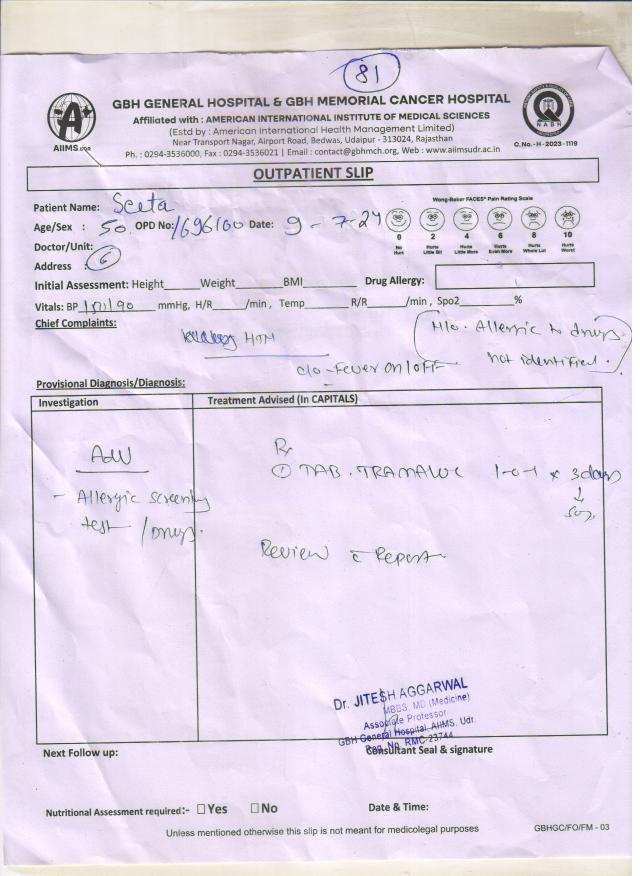 81
GBH GENERAL HOSPITAL & GBH MEMORIAL CANCER HOSPITAL
Affiliated with : AMERICAN INTERNATIONAL INSTITUTE OF MEDICAL SCIENCES
(Estd by : American International Health Management Limited)
Near Transport Nagar, Airport Road, Bedwas, Udaipur - 313024, Rajasthan
Ph. : 0294-3536000, Fax : 0294-3536021 | Email : contact@gbhmch.org, Web : www.aiimsudr.ac.in
AIIMS.
NABH
C. No. - H - 2023 - 1119
OUTPATIENT SLIP
Patient Name: Seeta
Wong-Baker FACES® Pain Rating Scale
Age/Sex : 50 OPD No: 1696100 Date: 9-7-24
0 2 4 6 8 10
No Hurt Hurts Little Bit Hurts Little More Hurts Even More Hurts Whole Lot Hurts Worst
Doctor/Unit:
Address : 6
Initial Assessment: Height Weight BMI Drug Allergy:
Vitals: BP /90 mmHg, H/R /min, Temp R/R /min, Spo2 %
Chief Complaints:
H/o. Allergic to drugs.
not identified.
HTN
c/o - Fever on/off
Provisional Diagnosis/Diagnosis:
Investigation Treatment Advised (In CAPITALS)
Adv
- Allergic screening
test / Drugs.
Rx
① TAB. 1-0-1 x 3 days
↓
SOS
Review c̄ Report
Dr. JITESH AGGARWAL
MBBS, MD (Medicine)
Associate Professor
GBH General Hospital, AIIMS, Udr.
Reg. No. RMC-23744
Next Follow up: Consultant Seal & signature
Nutritional Assessment required:- Yes No Date & Time:
Unless mentioned otherwise this slip is not meant for medicolegal purposes GBHGC/FO/FM - 03